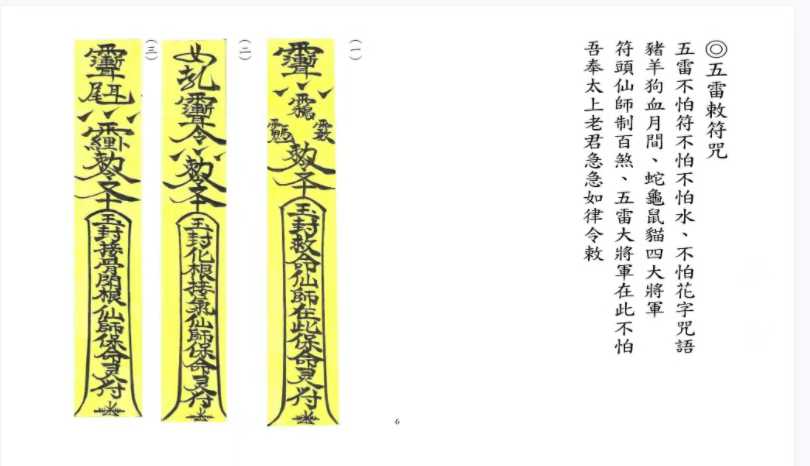 ◎五雷敕符咒
五雷不怕符不怕不怕水、不怕花字咒語
豬羊狗血月間、蛇龜鼠貓四大將軍
符頭仙師制百煞、五雷大將軍在此不怕
吾奉太上老君急急如律令敕
(一)
玉封救命仙師在此保命灵符
(二)
令
玉封化根接氣仙師保命灵符
(三)
玉封接骨閉根仙師保命灵符
6